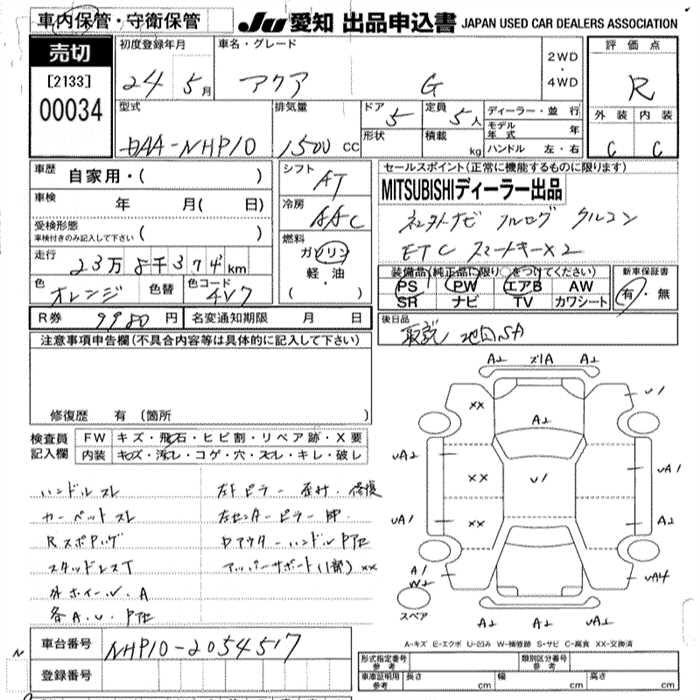 車内保管・守衛保管
JU 愛知 出品申込書 JAPAN USED CAR DEALERS ASSOCIATION
売切
[2133]
00034
初度登録年月
24 5月
車名・グレード
アクア G
2WD
・
4WD
評価点
R
外装 内装
C C
型式
DAA-NHP10
排気量
1500 CC
ドア 5
定員 5人
形状
積載 kg
ディーラー・並行
モデル年式 年
ハンドル 左・右
車歴 自家用・( )
車検 年 月( 日)
受検形態
車検付きのみ記入して下さい ( )
走行
23万8千374km
色 オレンジ 色替 色コード 4V7
シフト
AT
冷房
AAC
燃料
ガソリン
軽・油
( ・ )
セールスポイント(正常に機能するものに限ります)
MITSUBISHIディーラー出品
社外ナビ フルセグ クルコン
ETC スマートキーx2
装備品(純正品に限り○をつけてください)
PS PW エアB AW
SR ナビ TV カワシート
新車保証書
有・無
後日品
取説
R券 9980円 名変通知期限 月 日
注意事項申告欄(不具合内容等は具体的に記入して下さい)
修復歴 有 (箇所
検査員記入欄
FW キズ・飛石・ヒビ割・リペア跡・X要
内装 キズ・汚レ・コゲ・穴・スレ・キレ・破レ
ハンドルスレ
カーペットスレ
スタッドレスT
外ホイール.A
各A.U.P跡
左センターピラー
アッパーサポート(1部)xx
A2 X1A A2
xx A2 U1
UA2 xx U1 UA1
UA1 xx A2
A1
W2 UA4
スペア
A2 A2 UA2
A-キズ E-エクボ U-凹み W-補修跡 S-サビ C-腐食 XX-交換済
車台番号 NHP10-2054517
登録番号
形式指定番号 参考
類別区分番号 参考
車庫証明用 参考 長さ cm 幅 cm 高さ cm